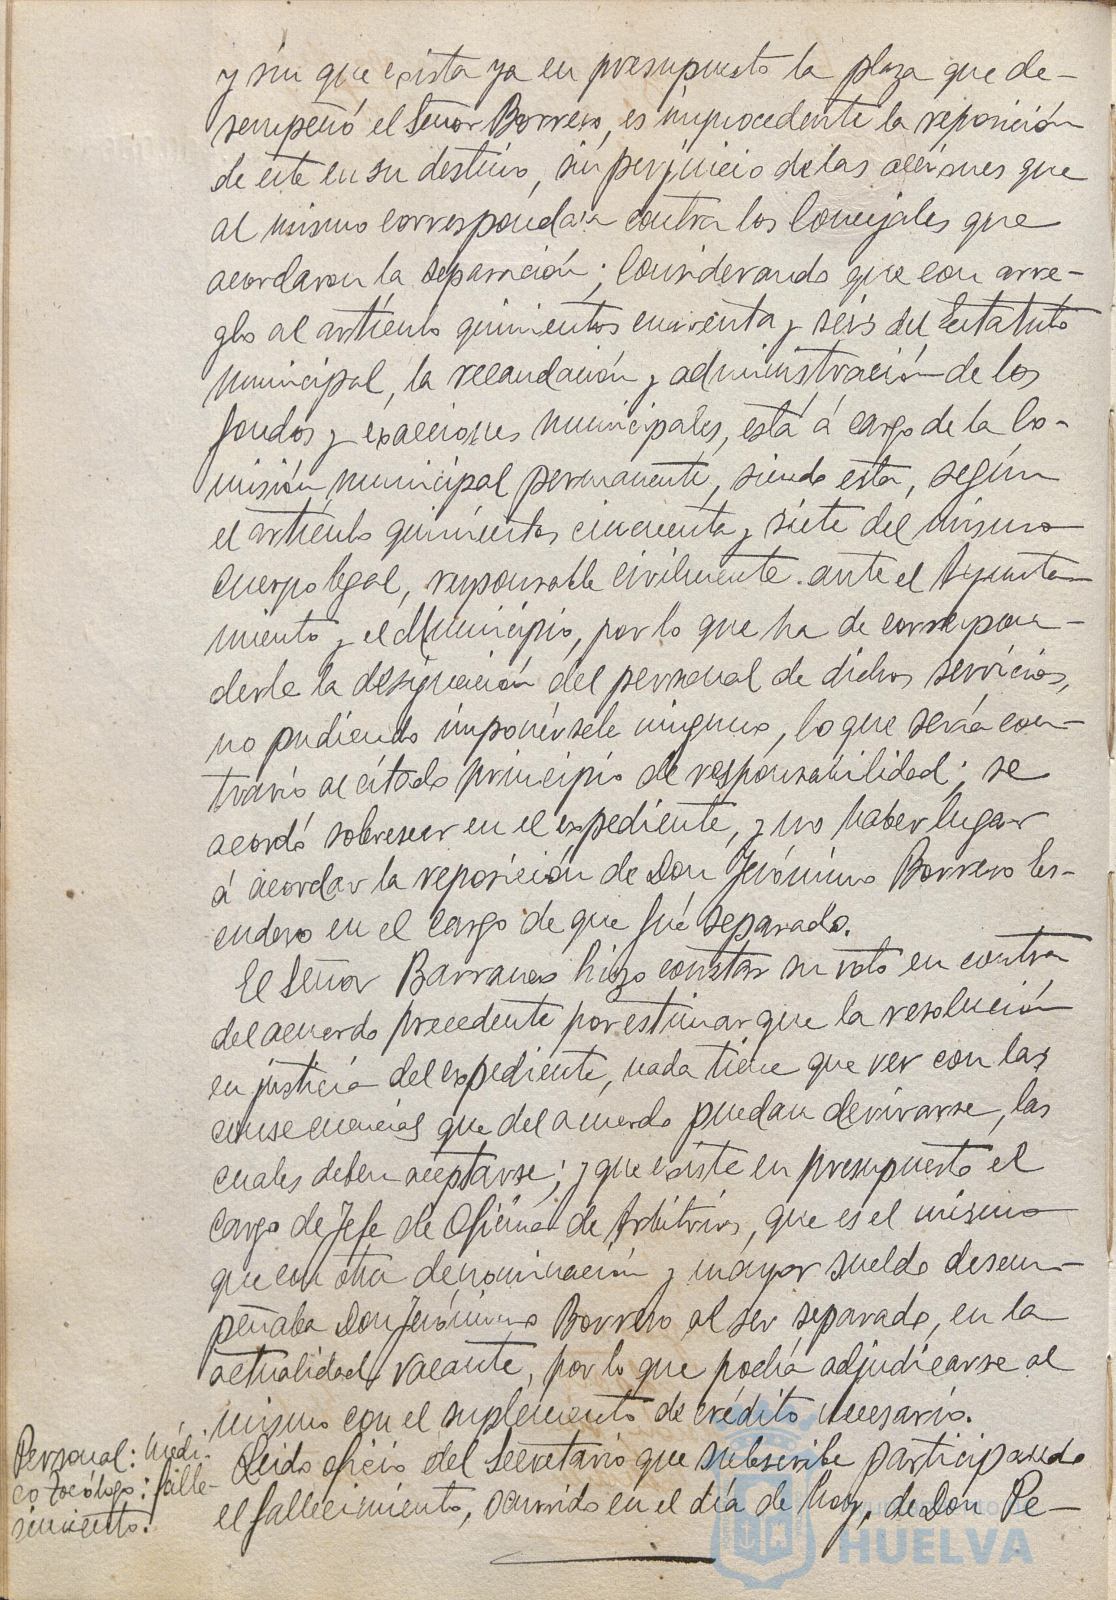 y sin que exista ya en presupuesto la plaza que de-
sempeñó el Señor Borrero, es improcedente la reposición
de este en su destino, sin perjuicio de las acciones que
al mismo correspondan contra los Concejales que
acordaron la separación; Considerando que con arre-
glo al artículo quinientos cincuenta y seis del Estatuto
municipal, la recaudación y administración de los
fondos y exacciones municipales, está á cargo de la Co-
misión municipal permanente, siendo esta, según
el artículo quinientos cincuenta y siete del mismo
cuerpo legal, responsable civilmente ante el Ayunta-
miento y el Municipio, por lo que ha de correspon-
derle la designación del personal de dichos servicios,
no pudiendo imponérsele ninguno, lo que sería con-
trario al citado principio de responsabilidad; se
acordó sobreseer en el expediente, y no haber lugar
á acordar la reposición de Don Jerónimo Borrero Es-
cudero en el cargo de que fué separado.
El Señor Barranco hizo constar su voto en contra
del acuerdo precedente por estimar que la resolución
en justicia del expediente, nada tiene que ver con las
consecuencias que del acuerdo puedan derivarse, las
cuales deben aceptarse; y que existe en presupuesto el
cargo de Jefe de Oficina de Arbitrios, que es el mismo
que con otra denominación y mayor sueldo desem-
peñaba Don Jerónimo Borrero al ser separado, en la
actualidad vacante, por lo que podría adjudicarse al
mismo con el suplemento de crédito necesario.
Personal: Médi-
co Tocólogo: falle-
cimiento.
Leído oficio del Secretario que subscribe participando
el fallecimiento, ocurrido en el día de hoy, de Don Pe-
HUELVA